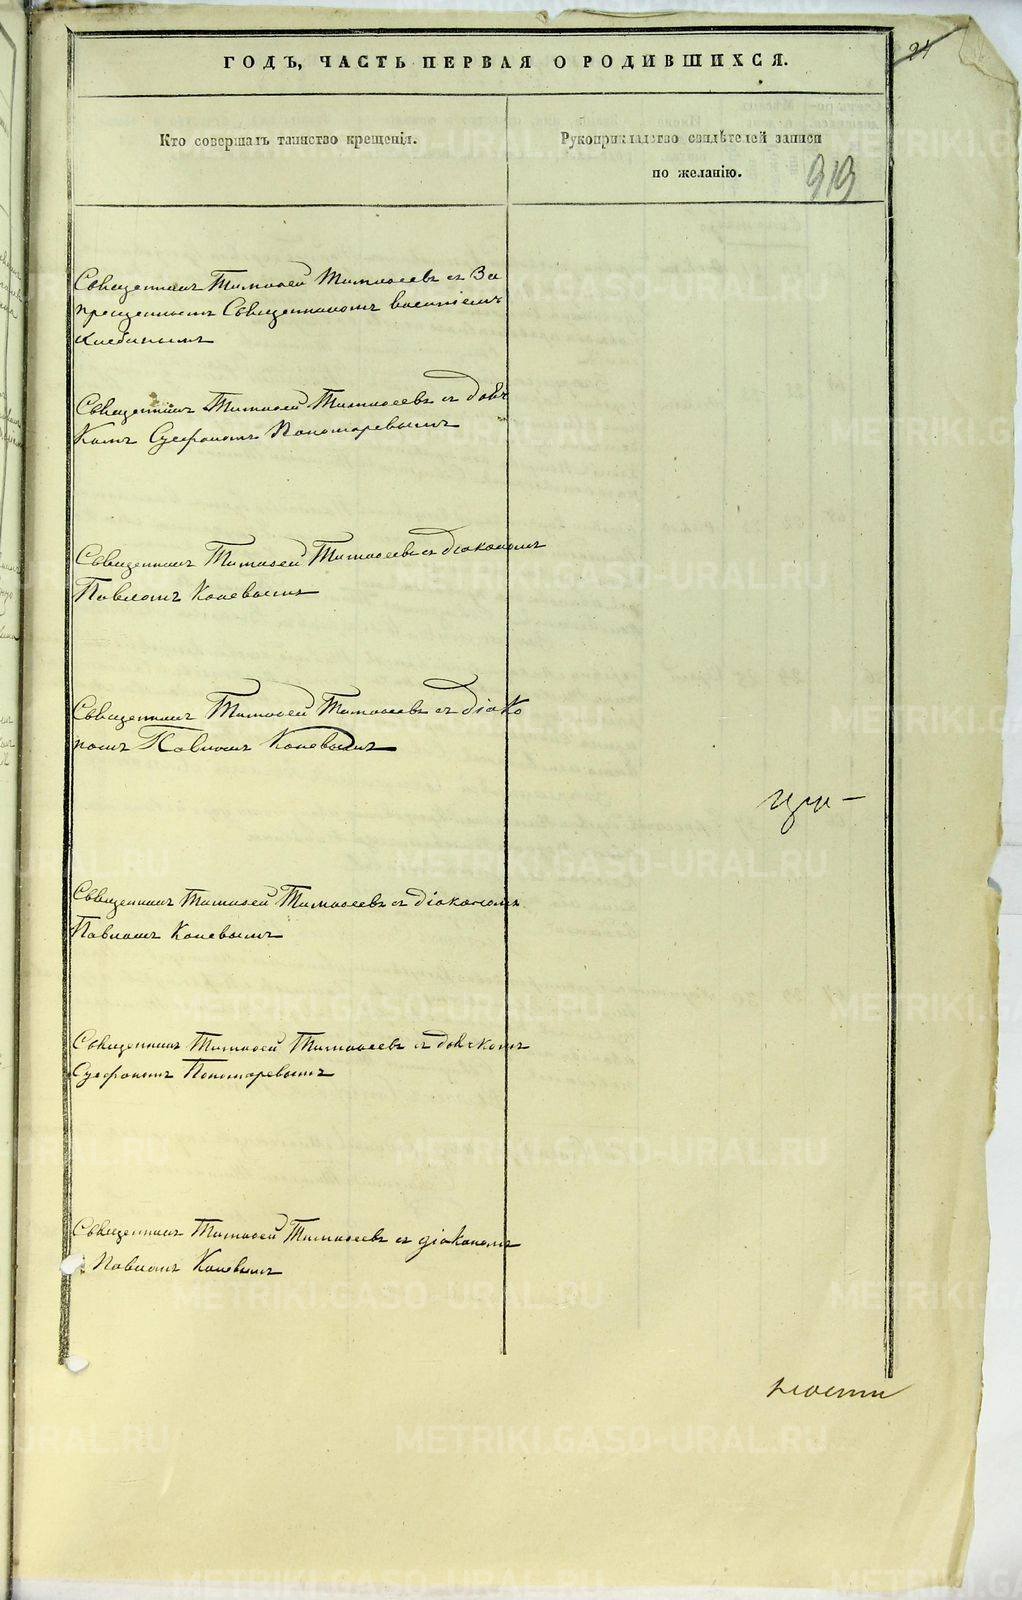 ГОДЪ, ЧАСТЬ ПЕРВАЯ О РОДИВШИХСЯ.
24
Кто совершалъ таинство крещенія.
Рукоприкладство свидѣтелей записи
по желанію.
919
Священникъ Тимофей Тимофеевъ съ За
прещеннымъ Священникомъ
Священникъ Тимофей Тимофеевъ съ дьяч
комъ Ксенофонтомъ Пономаревымъ
Священникъ Тимофей Тимофеевъ съ діакономъ
Павломъ Коневымъ
Священникъ Тимофей Тимофеевъ съ діако
номъ Павломъ Коневымъ
Священникъ Тимофей Тимофеевъ съ діакономъ
Павломъ Коневымъ
Священникъ Тимофей Тимофеевъ съ дьячкомъ
Пономаревымъ
Священникъ Тимофей Тимофеевъ съ діакономъ
Павломъ Коневымъ
METRIKI.GASO-URAL.RU